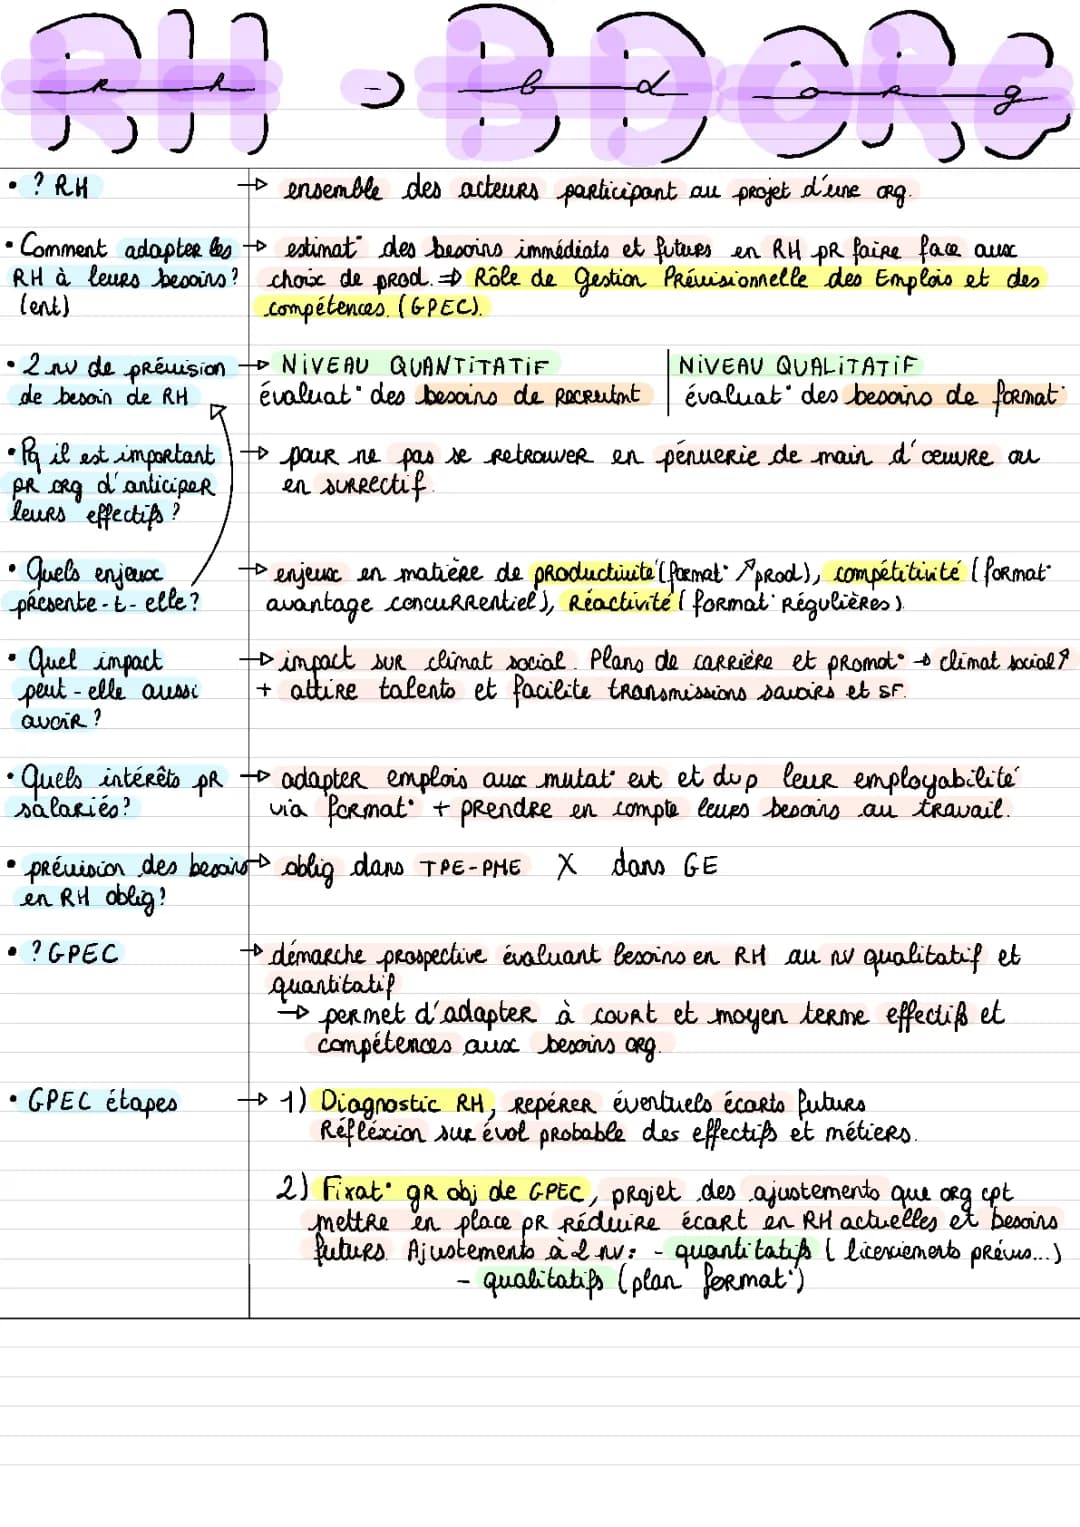 RH → BD ORG
• ? RH → ensemble des acteurs participant au projet d'une org.
• Comment adapter les → estimat° des besoins immédiats et futurs en RH pR faire face aux
RH à leurs besoins? choix de prod. ⇒ Rôle de Gestion Prévisionnelle des Emplois et des
(ent) compétences. (GPEC).
• 2 nv de prévision → NIVEAU QUANTITATIF | NIVEAU QUALITATIF
de besoin de RH évaluat° des besoins de Recrutmt | évaluat° des besoins de format°
• Pq il est important → pour ne pas se retrouver en pénuerie de main d'œuvre ou
pR org d'anticiper en surrectif.
leurs effectifs ?
• Quels enjeux → enjeux en matière de productivité (format° ↗ prod), compétitivité (format°
présente-t-elle ? avantage concurrentiel), Réactivité (format° Régulières).
• Quel impact → impact sur climat social. Plans de carrière et promot° → climat social ↗
peut-elle aussi + attire talents et facilite transmissions savoirs et SF.
avoir ?
• Quels intérêts pR → adapter emplois aux mutat° ent et dvp leur employabilité
salariés? via format° + prendre en compte leurs besoins au travail.
• prévision des besoins → oblig dans TPE-PME X dans GE
en RH oblig?
• ? GPEC → démarche prospective évaluant besoins en RH au nv qualitatif et
quantitatif
→ permet d'adapter à court et moyen terme effectifs et
compétences aux besoins org.
• GPEC étapes → 1) Diagnostic RH, repérer éventuels écarts futurs
Réfléxion sur évol probable des effectifs et métiers.
2) Fixat° gR obj de GPEC, projet des ajustements que org cpt
mettre en place pR réduire écart en RH actuelles et besoins
futurs. Ajustements à 2 nv: - quantitatifs ( licenciements prévus...)
- qualitatifs (plan format°)